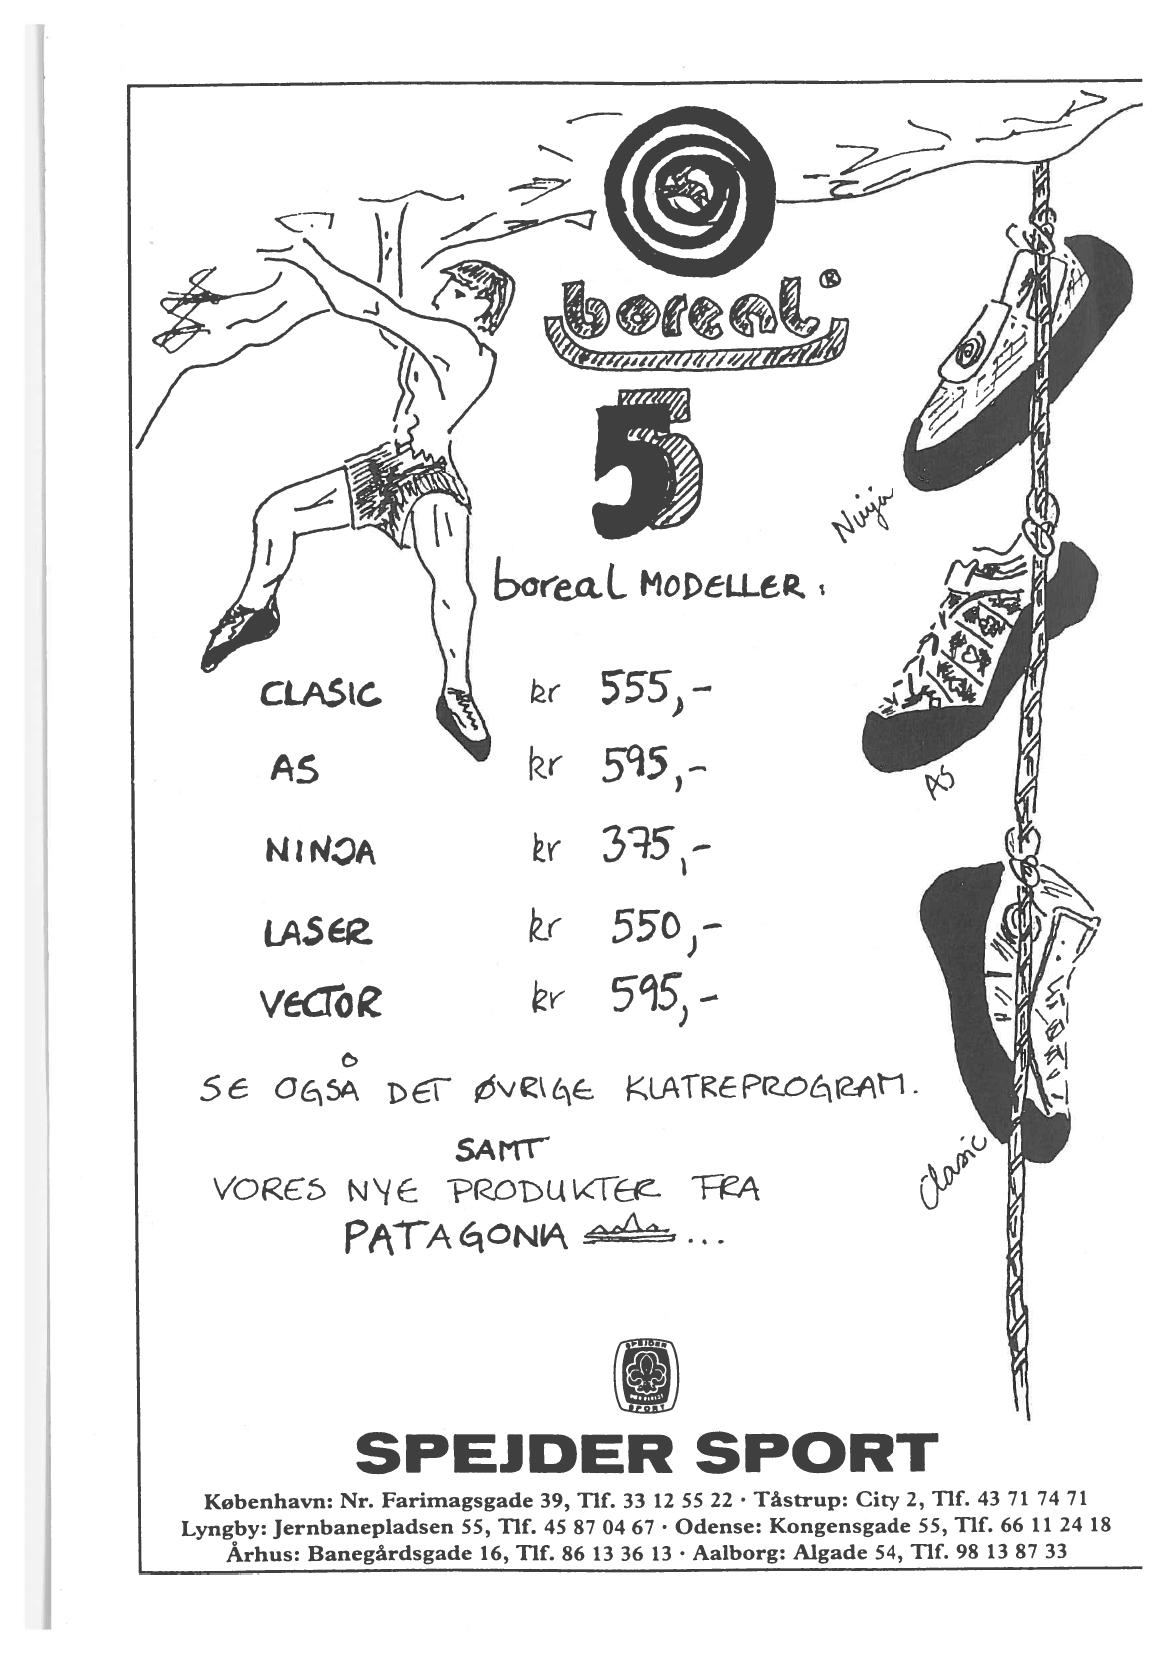 boreal®
5
boreal MODELLER:
Ninja
CLASIC kr 555,-
AS kr 595,-
AS
NINJA kr 375,-
LASER kr 550,-
VECTOR kr 595,-
SE OGSÅ DET ØVRIGE KLATREPROGRAM.
SAMT
Clasic
VORES NYE PRODUKTER FRA
PATAGONIA ...
SPEJDER
SPORT
SPEJDER SPORT
København: Nr. Farimagsgade 39, Tlf. 33 12 55 22 · Tåstrup: City 2, Tlf. 43 71 74 71
Lyngby: Jernbanepladsen 55, Tlf. 45 87 04 67 · Odense: Kongensgade 55, Tlf. 66 11 24 18
Århus: Banegårdsgade 16, Tlf. 86 13 36 13 · Aalborg: Algade 54, Tlf. 98 13 87 33